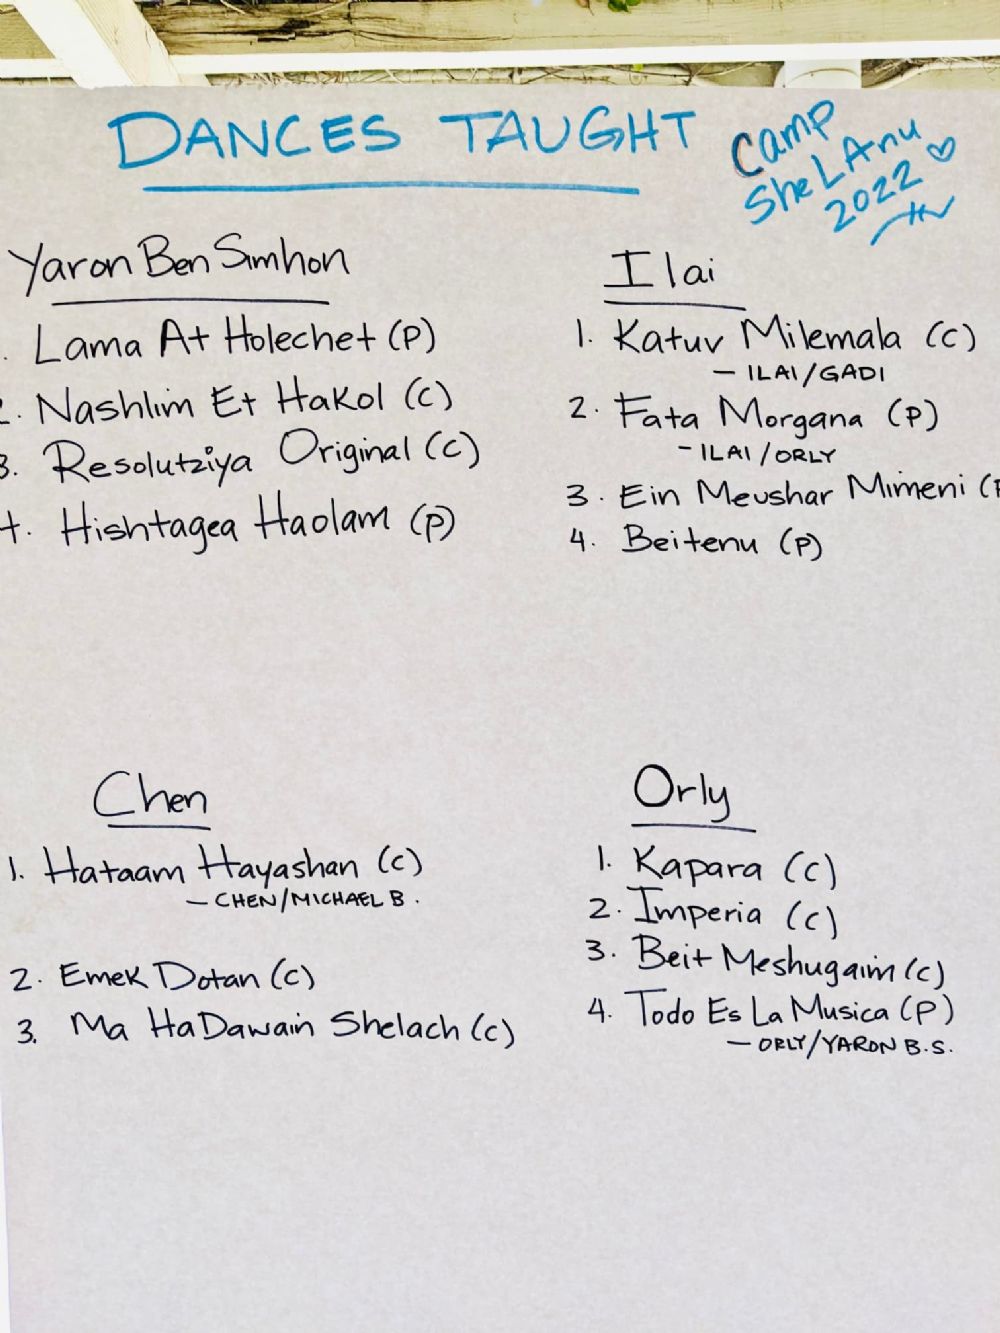 DANCES TAUGHT
Camp
SheLAnu
2022
Yaron Ben Simhon
. Lama At Holechet (P)
2. Nashlim Et HaKol (C)
3. Resolutziya Original (C)
4. Hishtagea Haolam (P)
Ilai
1. Katuv Milemala (C)
- ILAI/GADI
2. Fata Morgana (P)
- ILAI/ORLY
3. Ein Meushar Mimeni (P
4. Beitenu (P)
Chen
1. Hataam Hayashan (C)
- CHEN/MICHAEL B.
2. Emek Dotan (C)
3. Ma HaDawain Shelach (C)
Orly
1. Kapara (C)
2. Imperia (C)
3. Beit Meshugaim (C)
4. Todo Es La Musica (P)
- ORLY/YARON B.S.